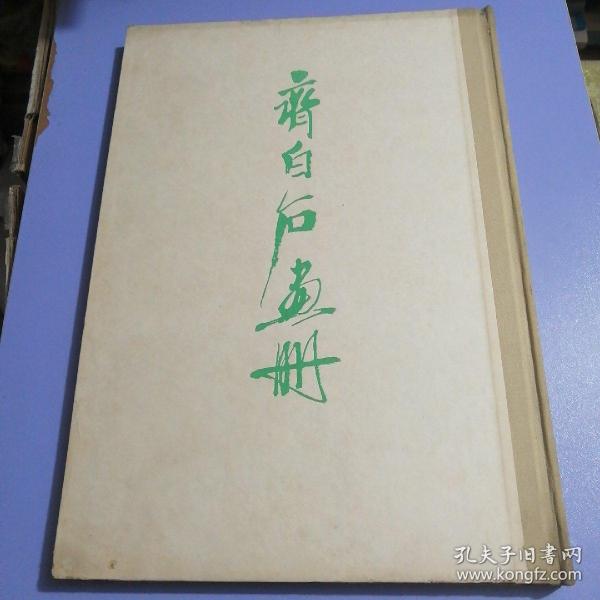 齊白石畫册
孔夫子旧書网
www.kongfz.com